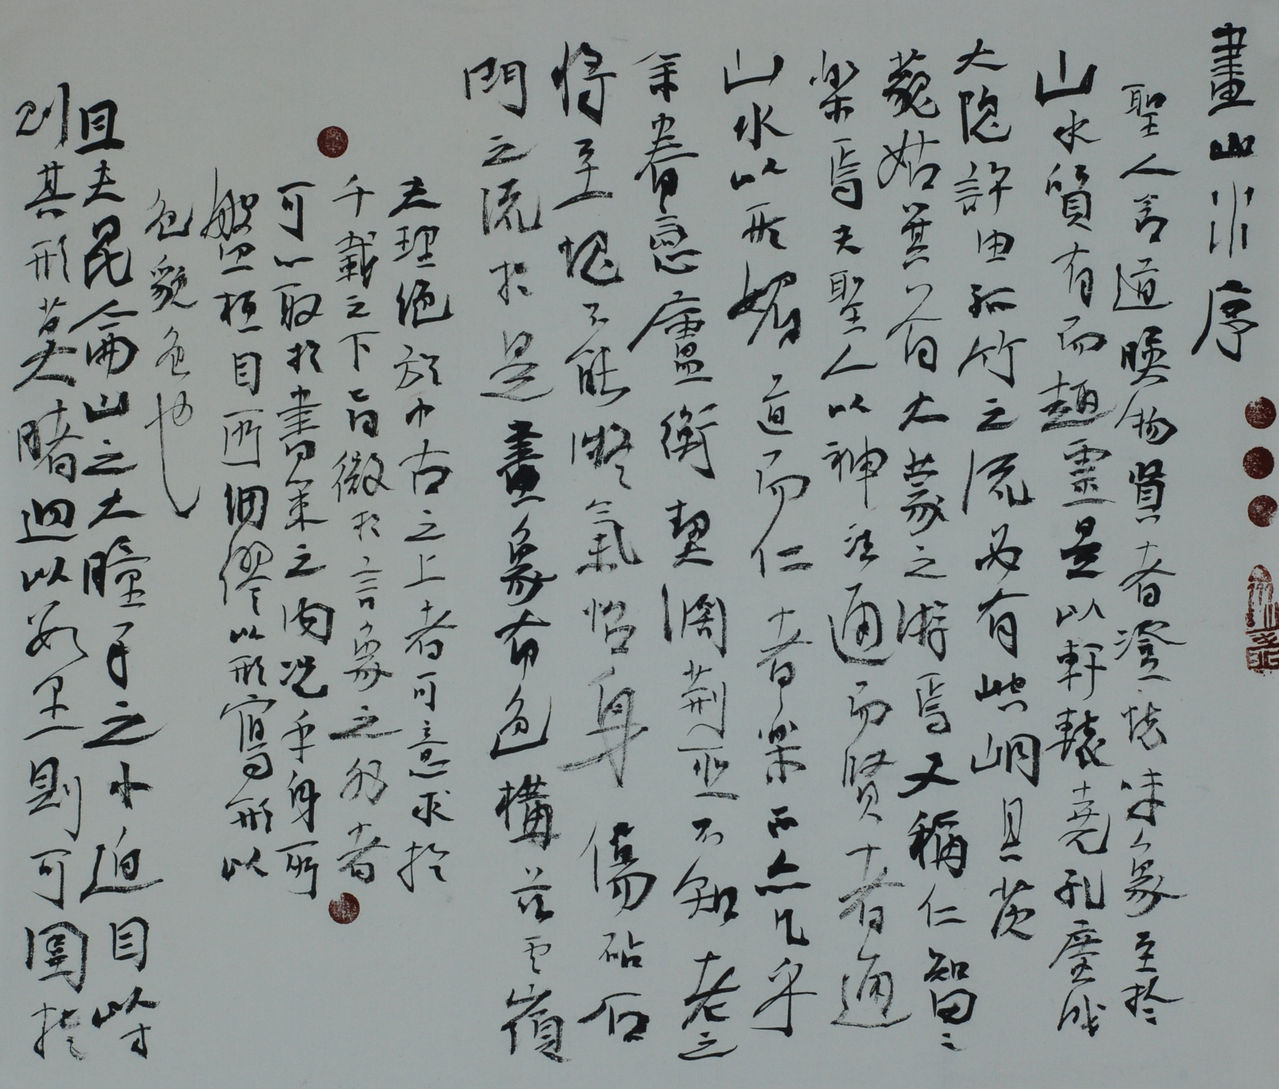 畫山水序
聖人含道暎物賢者澄懷味象至於
山水質有而趣靈是以軒轅堯孔廣成
大隗許由孤竹之流必有崆峒具茨
藐姑箕首大蒙之游焉又稱仁智之
樂焉夫聖人以神法通而賢者通
山水以形媚道而仁者樂不亦几乎
余眷戀廬衡契闊荊巫不知老之
將至愧不能凝氣怡身傷砧石
門之流於是畫象布色構茲雲嶺
夫理絕於中古之上者可意求於
千載之下旨微於言象之外者
可心取於書策之內況乎身所
盤桓目所綢繆以形寫形以
色貌色也
且夫昆侖山之大瞳子之小迫目以寸
則其形莫睹迥以數里則可圍於